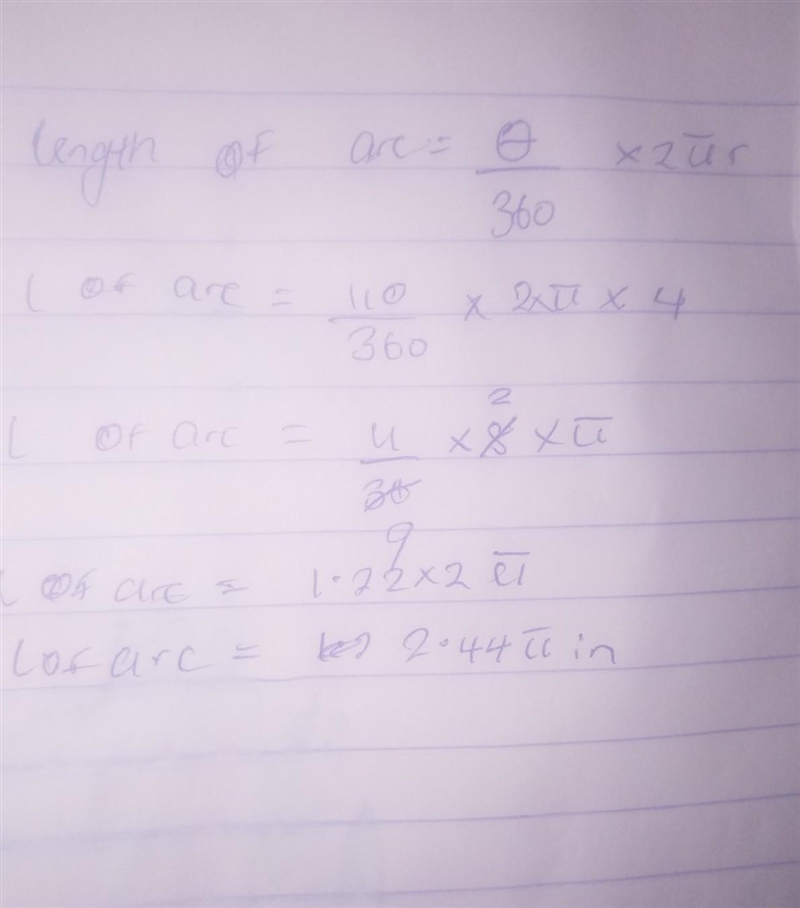 length of arc = θ/360 × 2πr
l of arc = 110/360 × 2×π × 4
l of arc = 11/36 9 × 8 2 × π
l of arc = 1.22×2 π
l of arc = 2.44π in